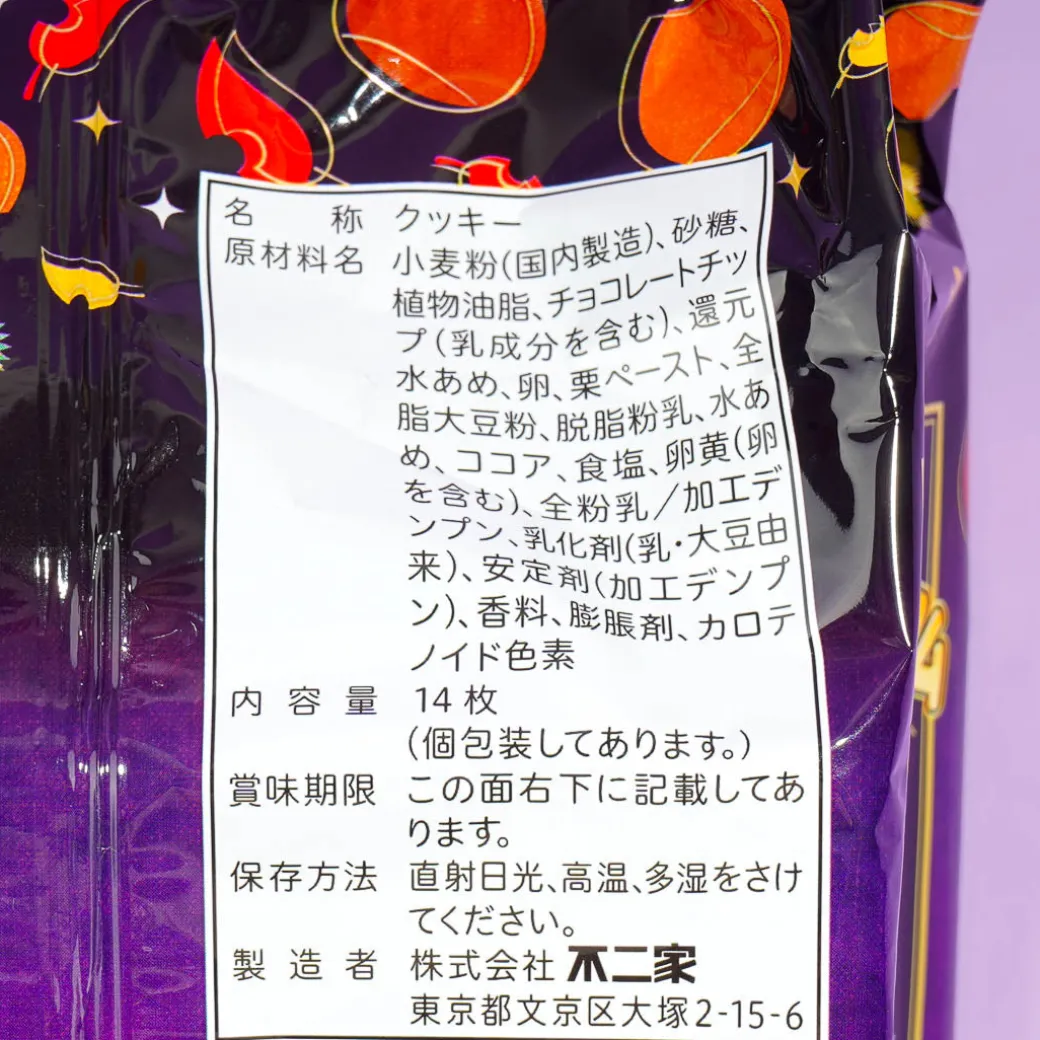 名称 クッキー
原材料名 小麦粉(国内製造)、砂糖、
植物油脂、チョコレートチッ
プ(乳成分を含む)、還元
水あめ、卵、栗ペースト、全
脂大豆粉、脱脂粉乳、水あ
め、ココア、食塩、卵黄(卵
を含む)、全粉乳／加工デ
ンプン、乳化剤(乳・大豆由
来)、安定剤(加工デンプ
ン)、香料、膨脹剤、カロテ
ノイド色素
内容量 14枚
(個包装してあります。)
賞味期限 この面右下に記載してあ
ります。
保存方法 直射日光、高温、多湿をさけ
てください。
製造者 株式会社 不二家
東京都文京区大塚2-15-6